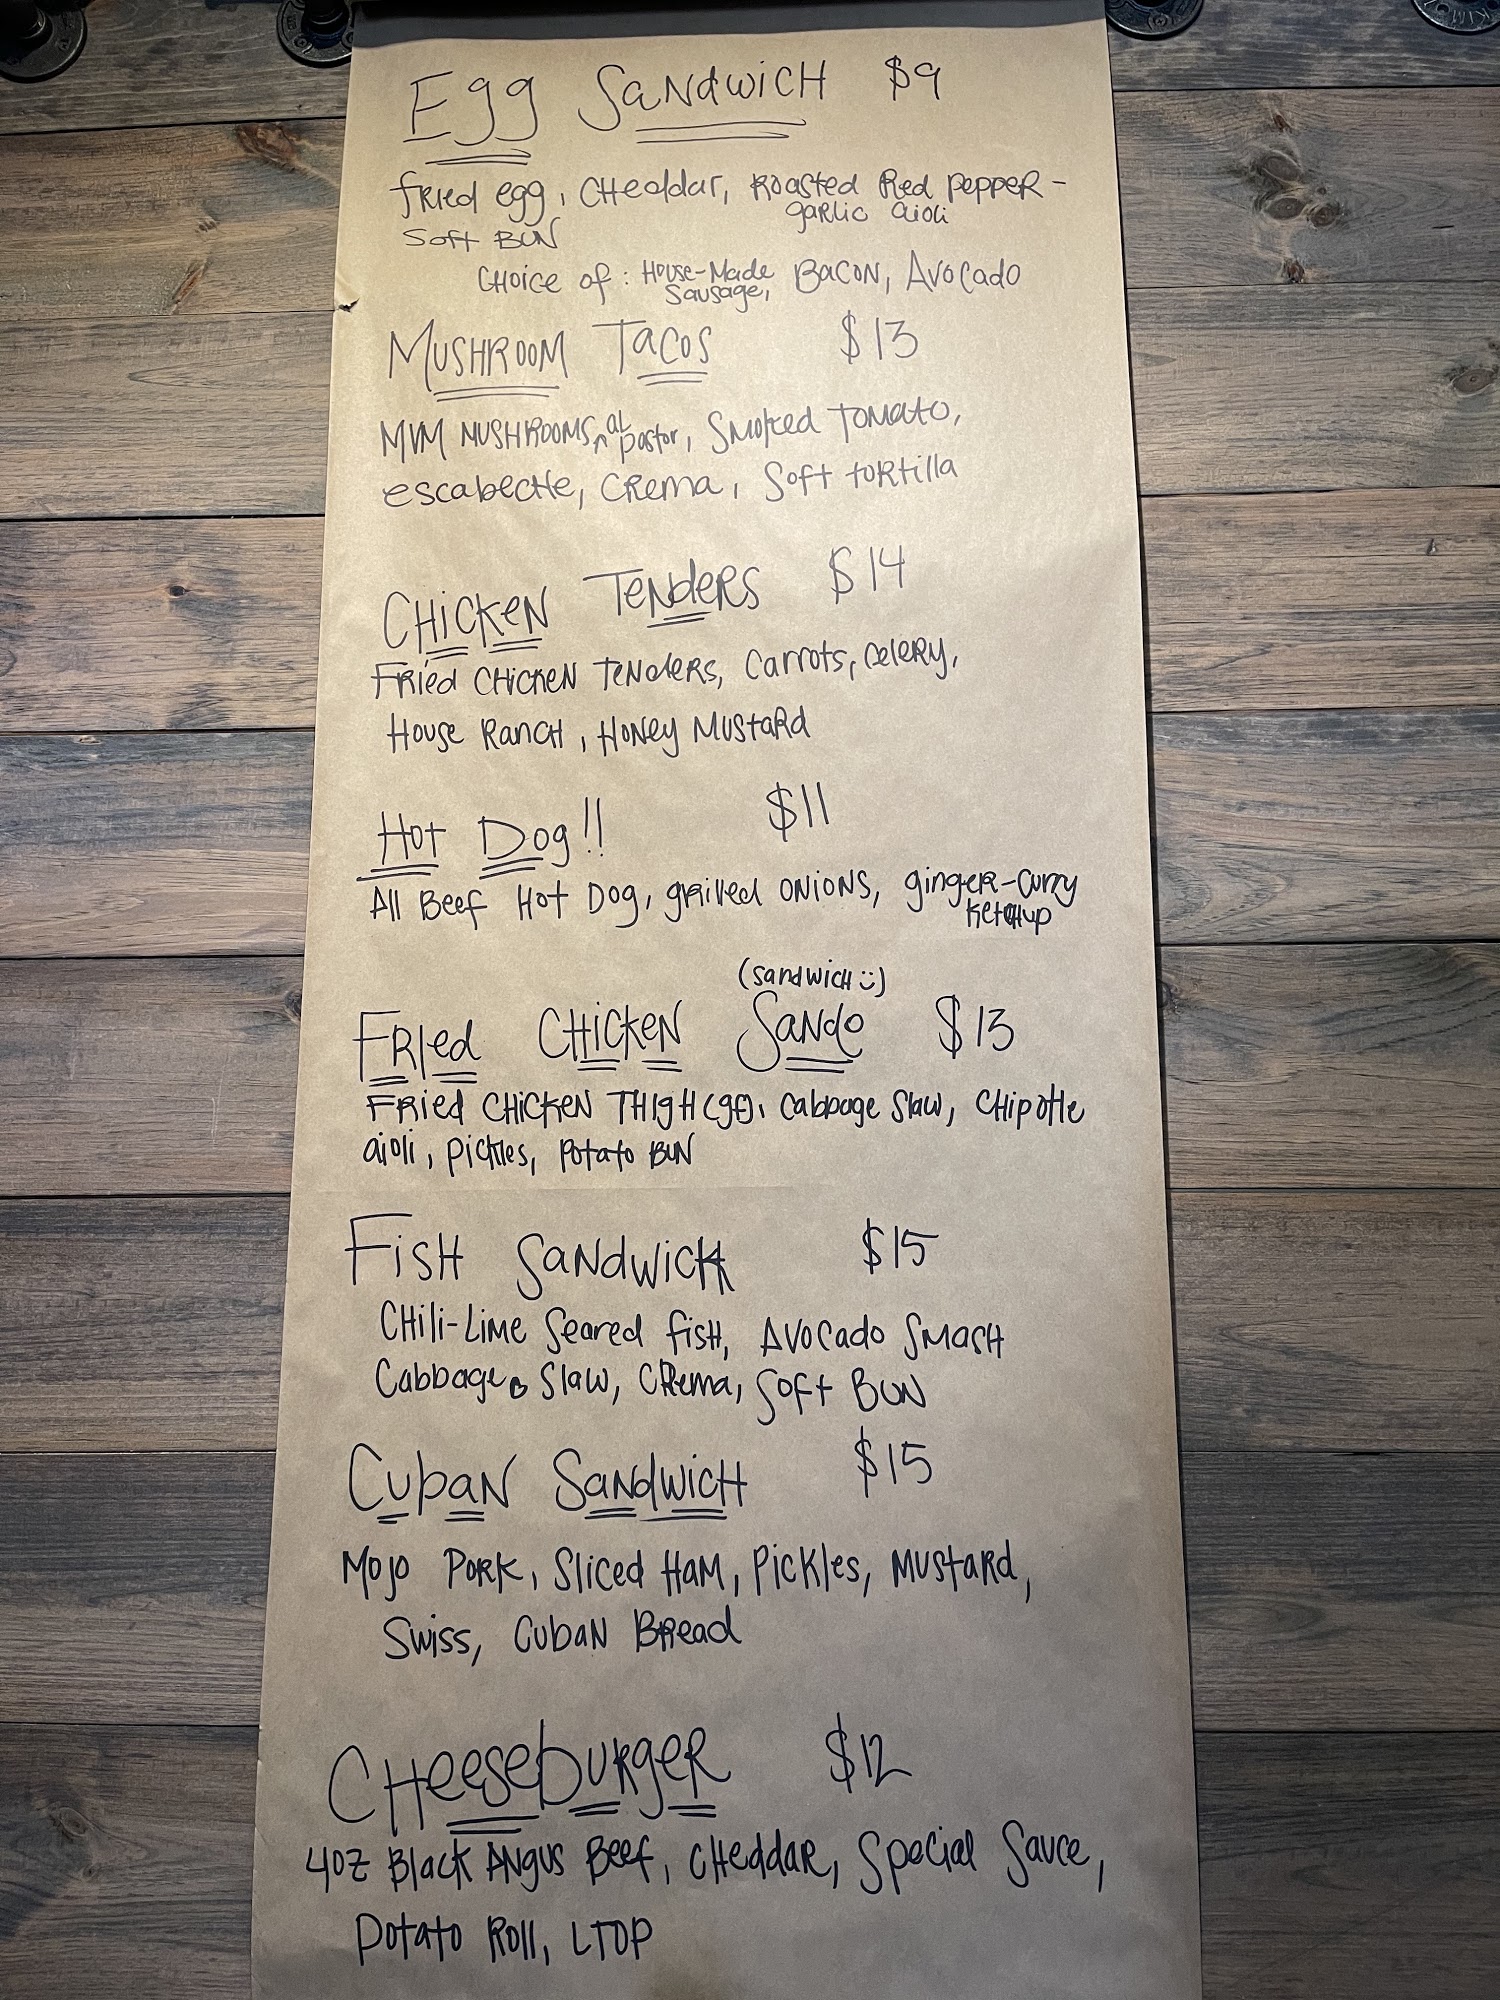 Egg Sandwich $9
Fried egg, Cheddar, Roasted Red Pepper-
garlic aioli
Soft Bun
Choice of: House-Made Sausage, Bacon, Avocado
Mushroom Tacos $13
MVM Mushrooms, al pastor, Smoked Tomato,
escabeche, Crema, Soft tortilla
Chicken Tenders $14
Fried Chicken Tenders, Carrots, Celery,
House Ranch, Honey Mustard
Hot Dog!! $11
All Beef Hot Dog, grilled onions, ginger-curry
ketchup
(Sandwich :))
Fried Chicken Sando $13
Fried Chicken Thigh (gf), Cabbage Slaw, Chipotle
aioli, pickles, Potato Bun
Fish Sandwich $15
Chili-Lime Seared fish, Avocado Smash
Cabbage Slaw, Crema, Soft Bun
Cuban Sandwich $15
Mojo Pork, Sliced Ham, Pickles, Mustard,
Swiss, Cuban Bread
Cheeseburger $12
4oz Black Angus Beef, Cheddar, Special Sauce,
Potato Roll, LTOP